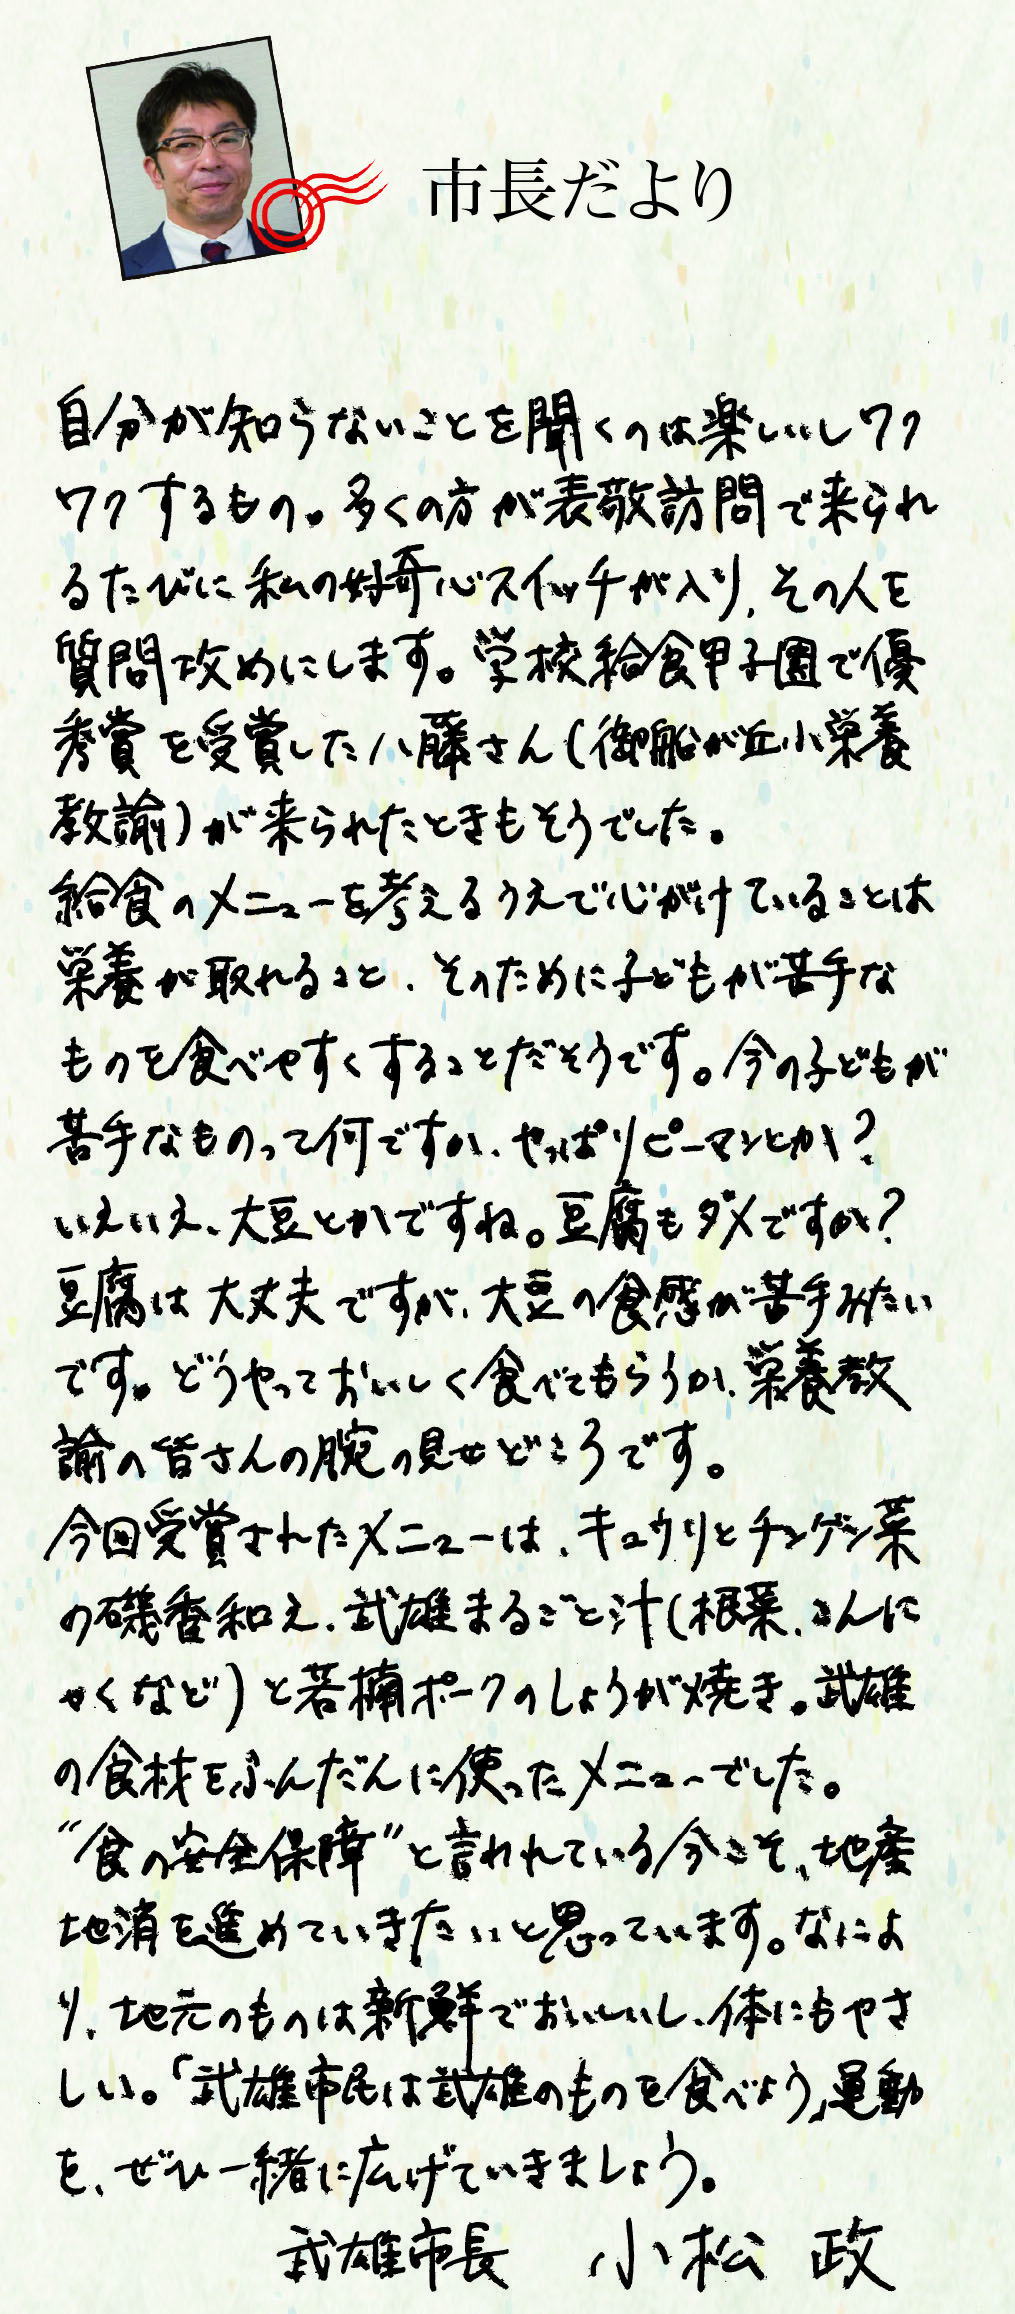 市長だより
自分が知らないことを聞くのは楽しいしワク
ワクするもの。多くの方が表敬訪問で来られ
るたびに私の好奇心スイッチが入り、その人を
質問攻めにします。学校給食甲子園で優
秀賞を受賞した八藤さん(御船が丘小栄養
教諭)が来られたときもそうでした。
給食のメニューを考えるうえで心がけていることは
栄養が取れること、そのために子どもが苦手な
ものを食べやすくすることだそうです。今の子どもが
苦手なものって何ですか、やっぱりピーマンとか?
いえいえ、大豆とかですね。豆腐もダメですか?
豆腐は大丈夫ですが、大豆の食感が苦手みたい
です。どうやっておいしく食べてもらうか、栄養教
諭の皆さんの腕の見せどころです。
今回受賞されたメニューは、キュウリとチンゲン菜
の磯香和え、武雄まるごと汁(根菜、こんに
ゃくなど)と若楠ポークのしょうが焼き。武雄
の食材をふんだんに使ったメニューでした。
"食の安全保障"と言われている今こそ、地産
地消を進めていきたいと思っています。なによ
り、地元のものは新鮮でおいしいし、体にもやさ
しい。「武雄市民は武雄のものを食べよう」運動
を、ぜひ一緒に広げていきましょう。
武雄市長 小松 政